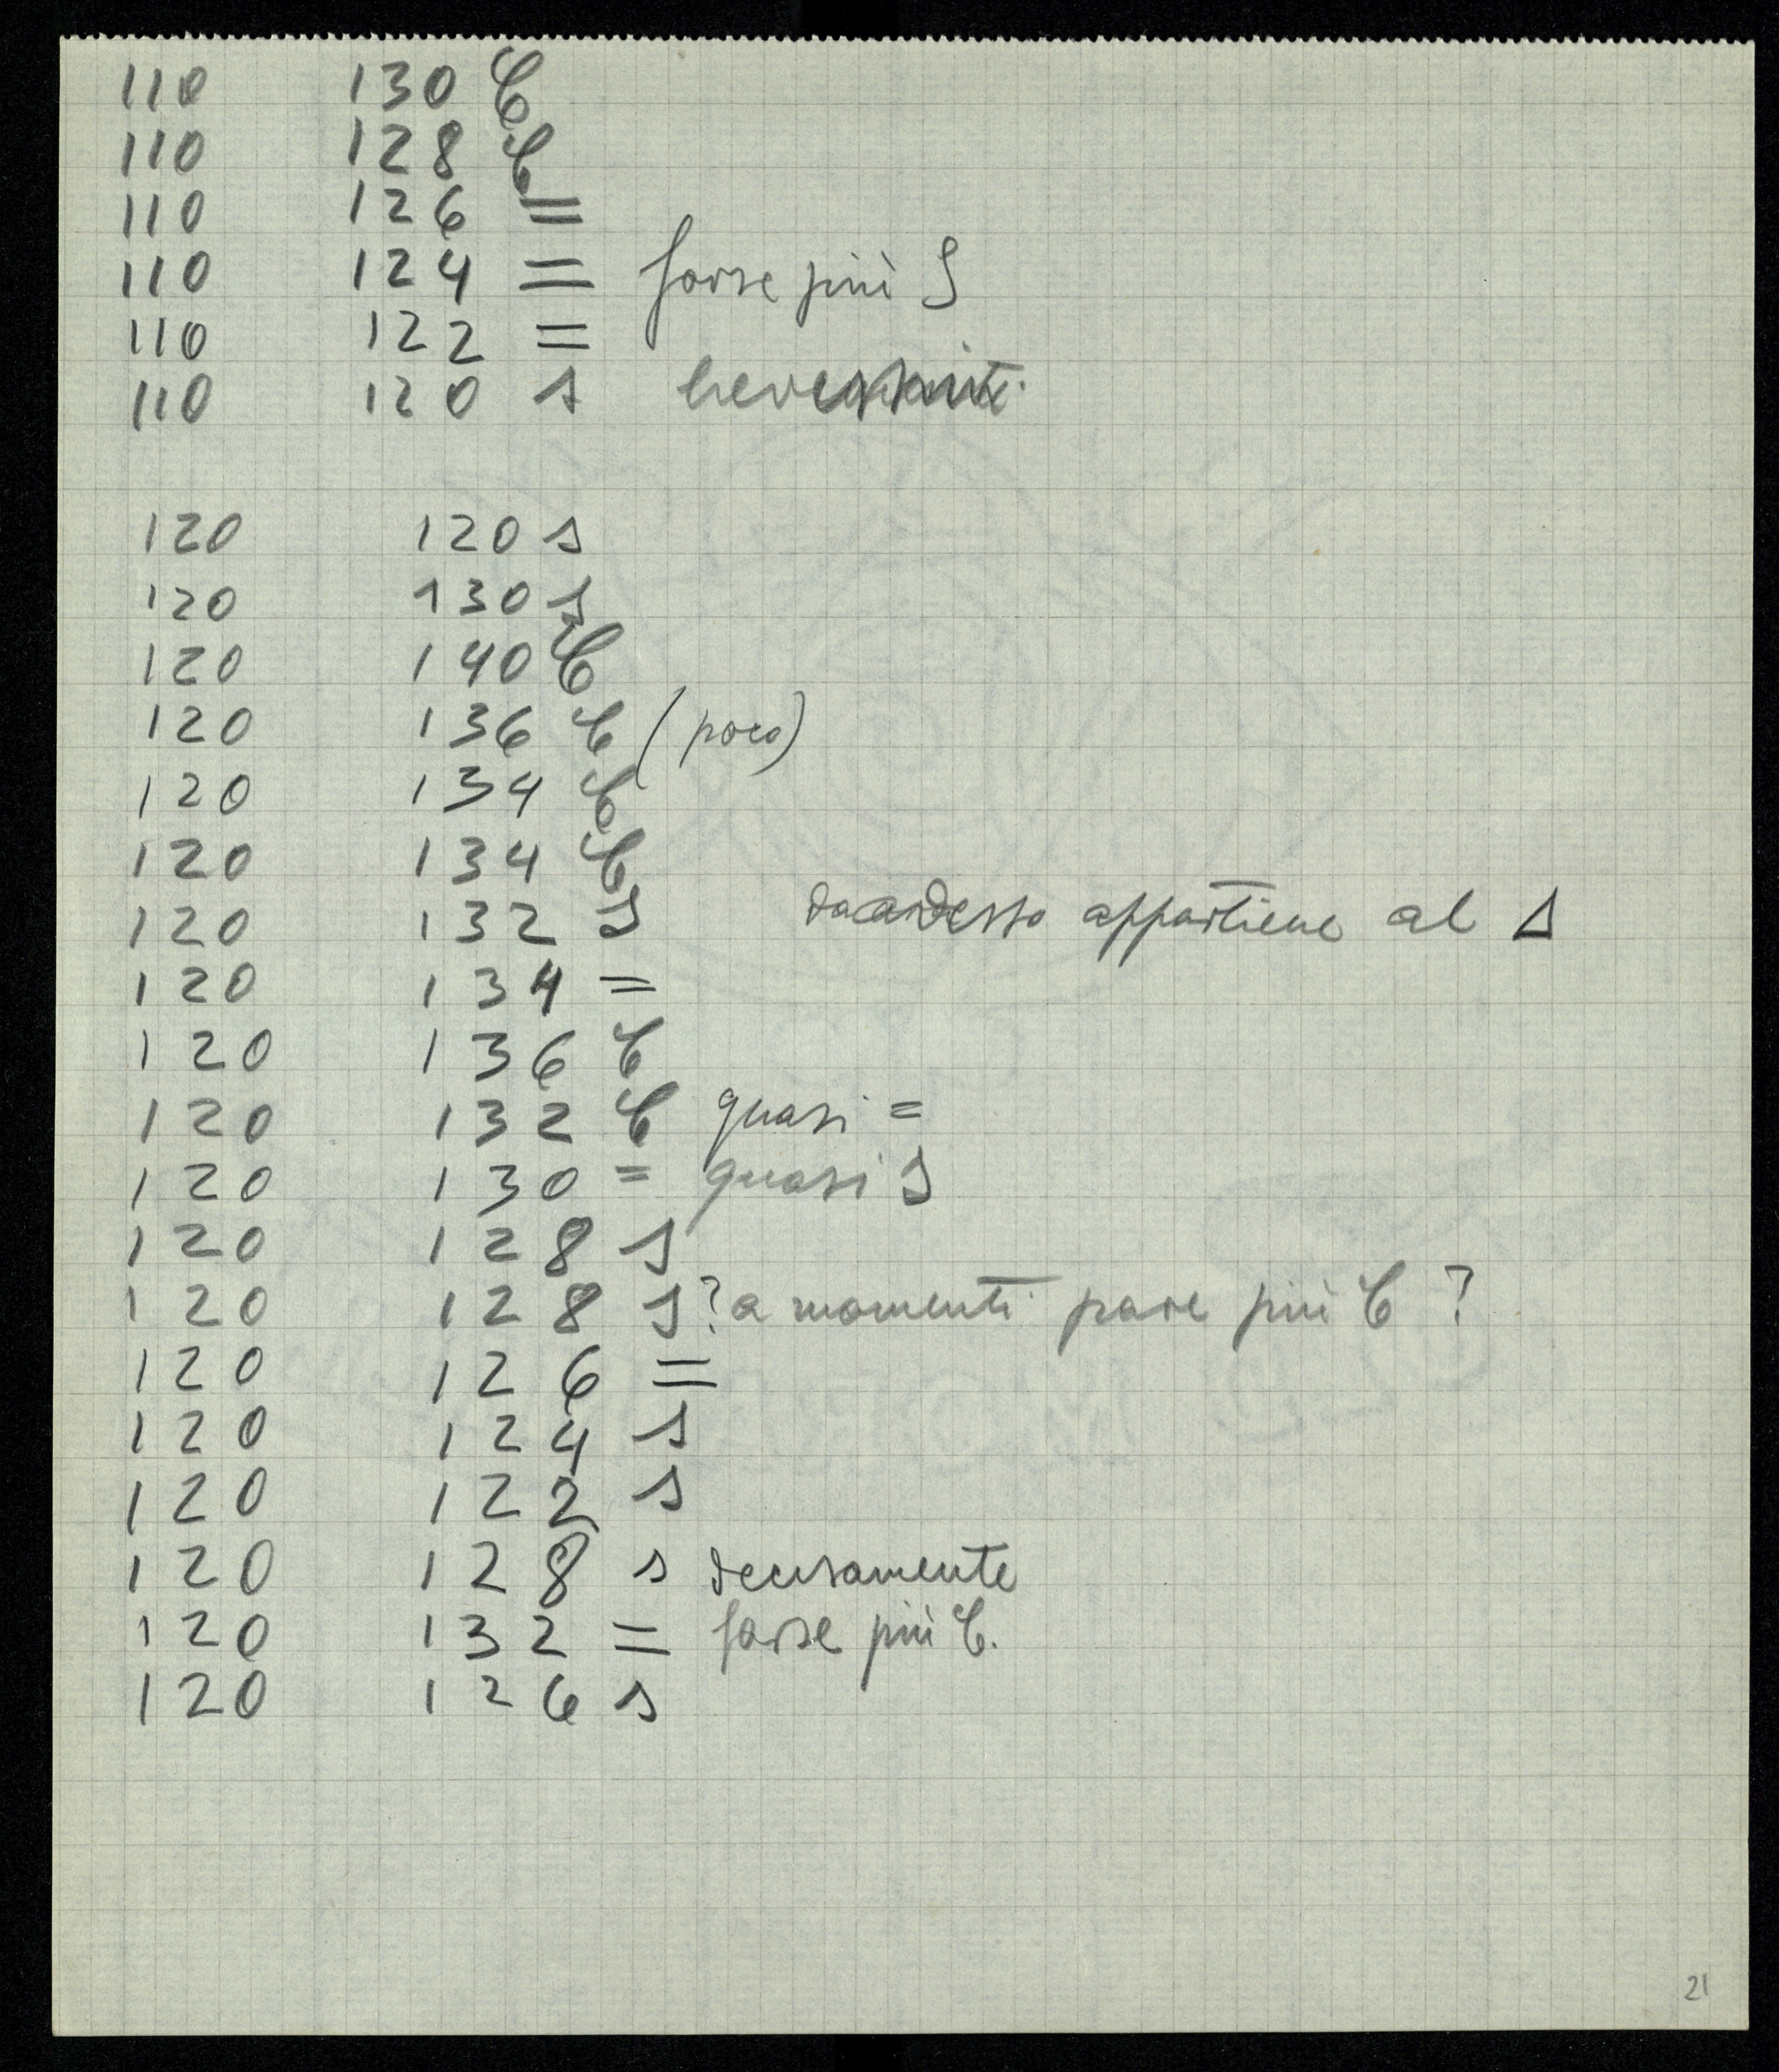 110 130 C
110 128 C
110 126 =
110 124 = forse più S
110 122 =
110 120 s
120 120 s
120 130 s
120 140 C
120 136 C (poco)
120 134 C
120 134 C
120 132 s da adesso appartiene al Δ
120 134 =
120 136 C
120 132 C quasi =
120 130 = quasi S
120 128 s
120 128 s? a momenti pare più C ?
120 126 =
120 124 s
120 122 s
120 128 s decisamente
120 132 = forse più C.
120 126 s
21